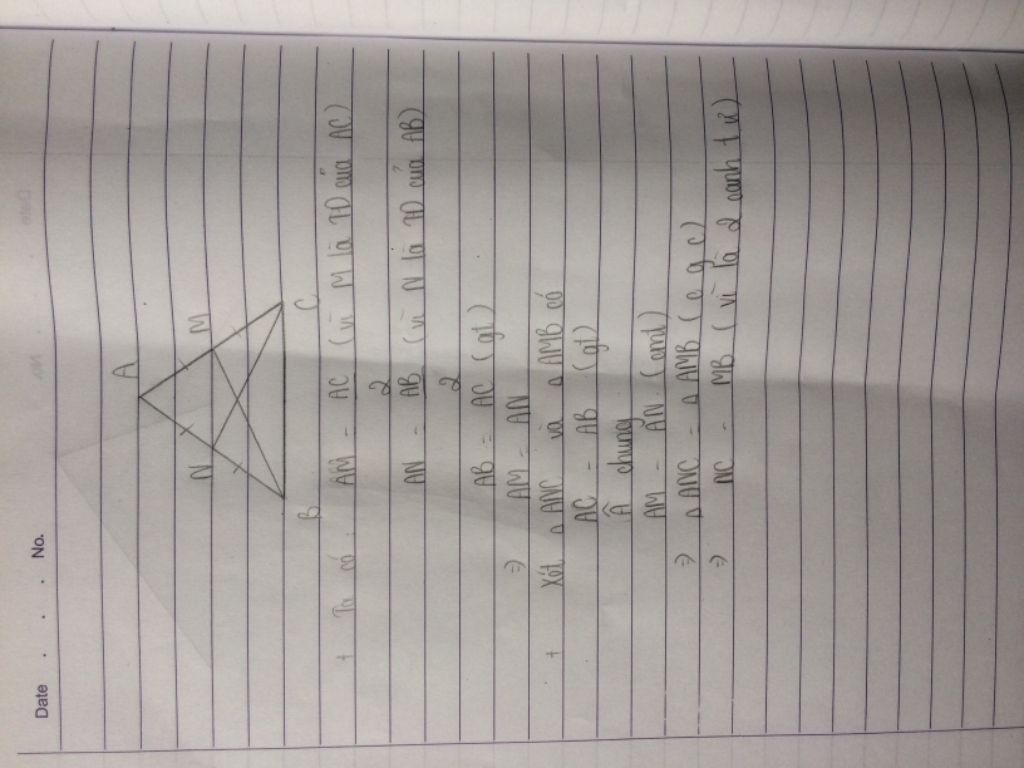 Date . . . No.
A
N M
B C
+ Ta có : AM = AC/2 (vì M là TĐ của AC)
AN = AB/2 (vì N là TĐ của AB)
AB = AC (gt)
=> AM = AN
+ Xét △ANC và △AMB có
AC = AB (gt)
Â chung
AM = AN (cmt)
=> △ANC = △AMB (c g c)
=> NC = MB (vì là 2 cạnh t ứ)